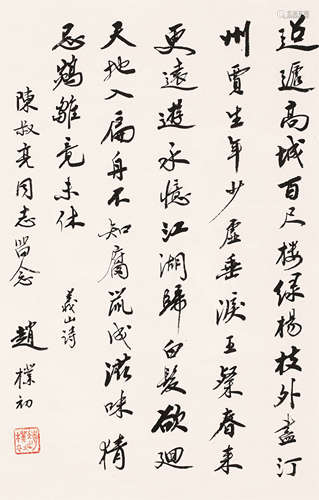 迢遞高城百尺樓綠楊枝外盡汀
州賈生年少虛垂淚王粲春來
更遠遊永憶江湖歸白髮欲迴
天地入扁舟不知腐鼠成滋味猜
忌鵷雛竟未休
義山詩
陳叔亮同志留念
趙樸初